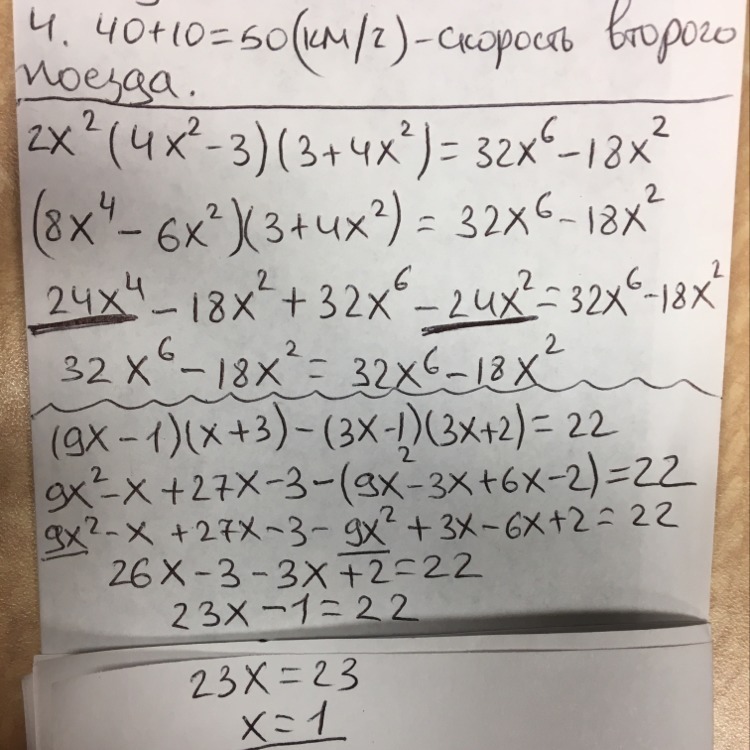 4. 40+10=50(км/г)-скорость второго
поезда.
2x²(4x²-3)(3+4x²)=32x⁶-18x²
(8x⁴-6x²)(3+4x²)=32x⁶-18x²
24x⁴-18x²+32x⁶-24x²=32x⁶-18x²
32x⁶-18x²=32x⁶-18x²
(9x-1)(x+3)-(3x-1)(3x+2)=22
9x²-x+27x-3-(9x²-3x+6x-2)=22
9x²-x+27x-3-9x²+3x-6x+2=22
26x-3-3x+2=22
23x-1=22
23x=23
x=1